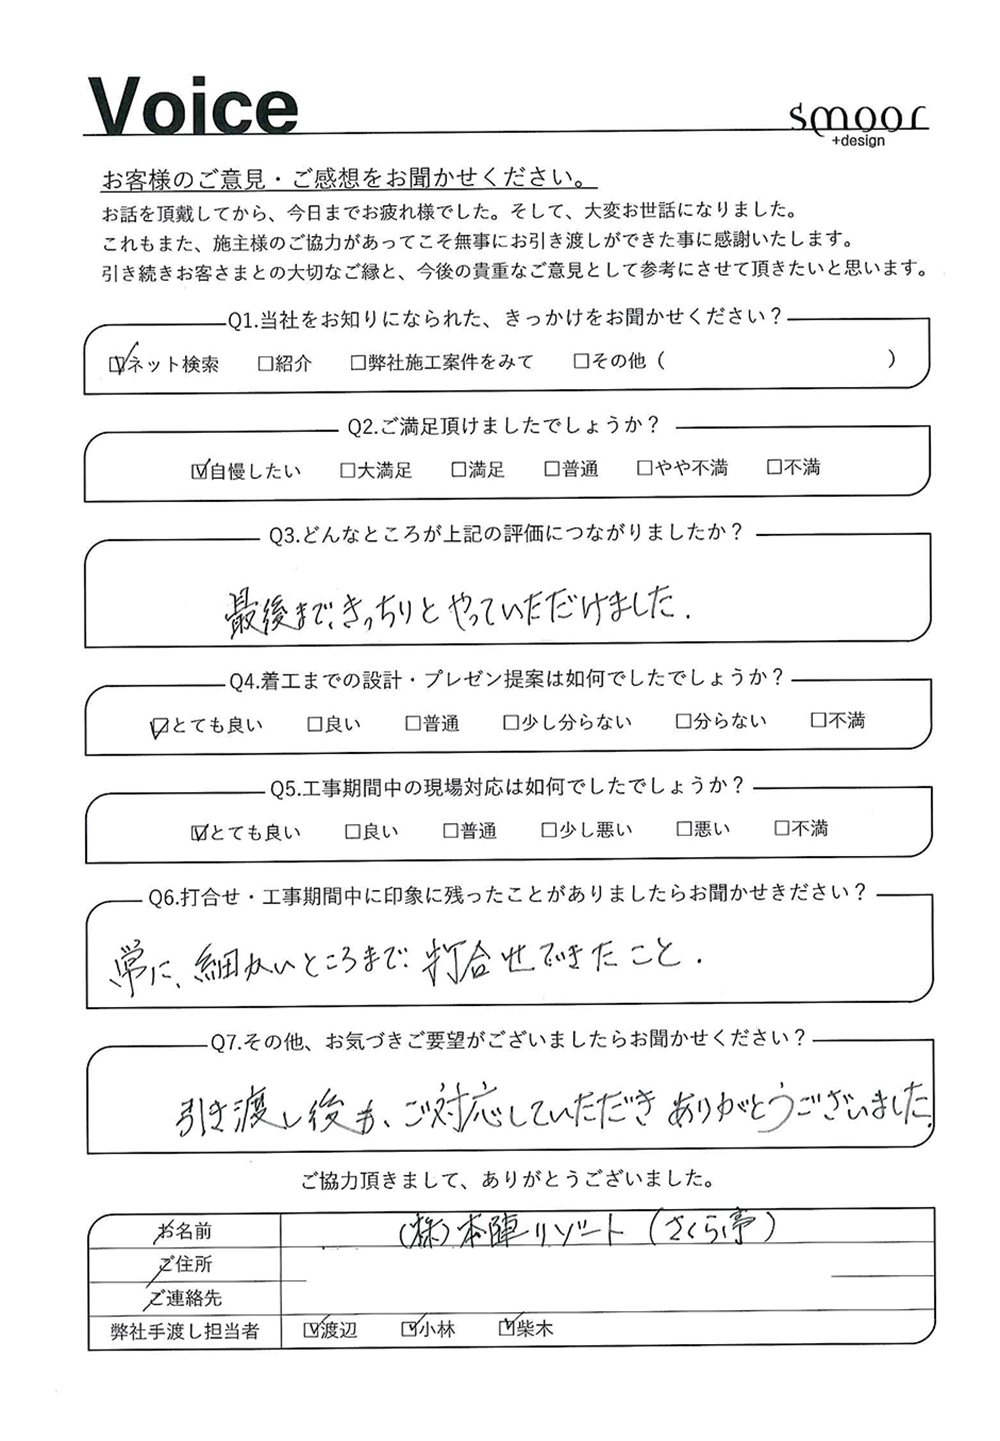 Voice
smoor
+design
お客様のご意見・ご感想をお聞かせください。
お話を頂戴してから、今日までお疲れ様でした。そして、大変お世話になりました。
これもまた、施主様のご協力があってこそ無事にお引き渡しができた事に感謝いたします。
引き続きお客さまとの大切なご縁と、今後の貴重なご意見として参考にさせて頂きたいと思います。
Q1.当社をお知りになられた、きっかけをお聞かせください?
☑ネット検索 □紹介 □弊社施工案件をみて □その他 ( )
Q2.ご満足頂けましたでしょうか?
☑自慢したい □大満足 □満足 □普通 □やや不満 □不満
Q3.どんなところが上記の評価につながりましたか?
最後まで、きっちりとやっていただけました.
Q4.着工までの設計・プレゼン提案は如何でしたでしょうか?
☑とても良い □良い □普通 □少し分らない □分らない □不満
Q5.工事期間中の現場対応は如何でしたでしょうか?
☑とても良い □良い □普通 □少し悪い □悪い □不満
Q6.打合せ・工事期間中に印象に残ったことがありましたらお聞かせきださい?
常に、細かいところまで打合せできたこと.
Q7.その他、お気づきご要望がございましたらお聞かせください?
引き渡し後も、ご対応していただきありがとうございました.
ご協力頂きまして、ありがとうございました。
お名前 (株)本陣リゾート(さくら亭)
ご住所
ご連絡先
弊社手渡し担当者 ☑渡辺 ☑小林 ☑柴木